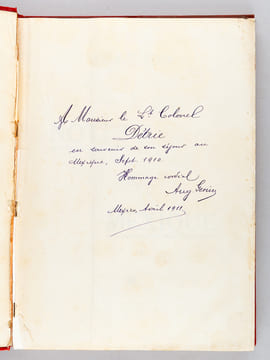 A Monsieur le Lt Colonel
Détrie
en souvenir de son séjour au
Mexique, Sept. 1910
Hommage cordial
Aug Genin
Mexico, Avril 1911